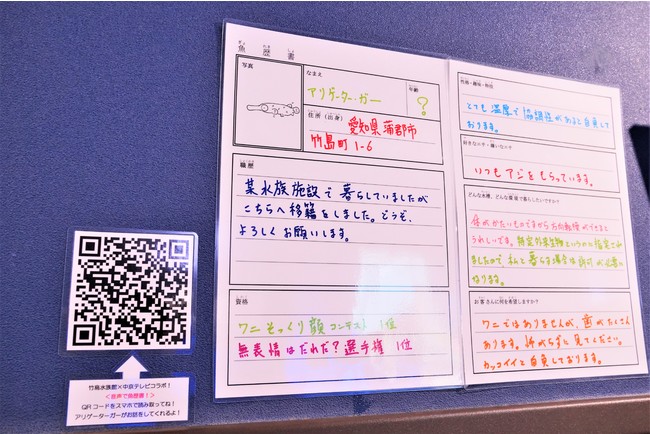 魚歴書
写真
なまえ
アリゲーター・ガー
年齢
?
住所(出身)
愛知県蒲郡市
竹島町1-6
職歴
某水族施設で暮らしていましたが
こちらへ移籍をしました。どうぞ、
よろしくお願いします。
資格
ワニそっくり顔コンテスト 1位
無表情はだれだ?選手権 1位
性格・趣味・特技
とても温厚で協調性があると自負して
おります。
好きなエサ・嫌いなエサ
いつもアジをもらっています。
どんな水槽、どんな環境で暮らしたいですか?
体がかたいものですから方向転換ができると
うれしいです。特定外来生物というものに指定され
ましたので
暮らす場合は許可が必要に
なります。
お客さんに何を希望しますか?
ワニではありませんが、歯がたくさん
あります。怖がらずに見てください。
カッコイイと自負しております。
竹島水族館×中京テレビコラボ!
<音声で魚歴書!>
QRコードをスマホで読み取ってね!
アリゲーターガーがお話をしてくれるよ!